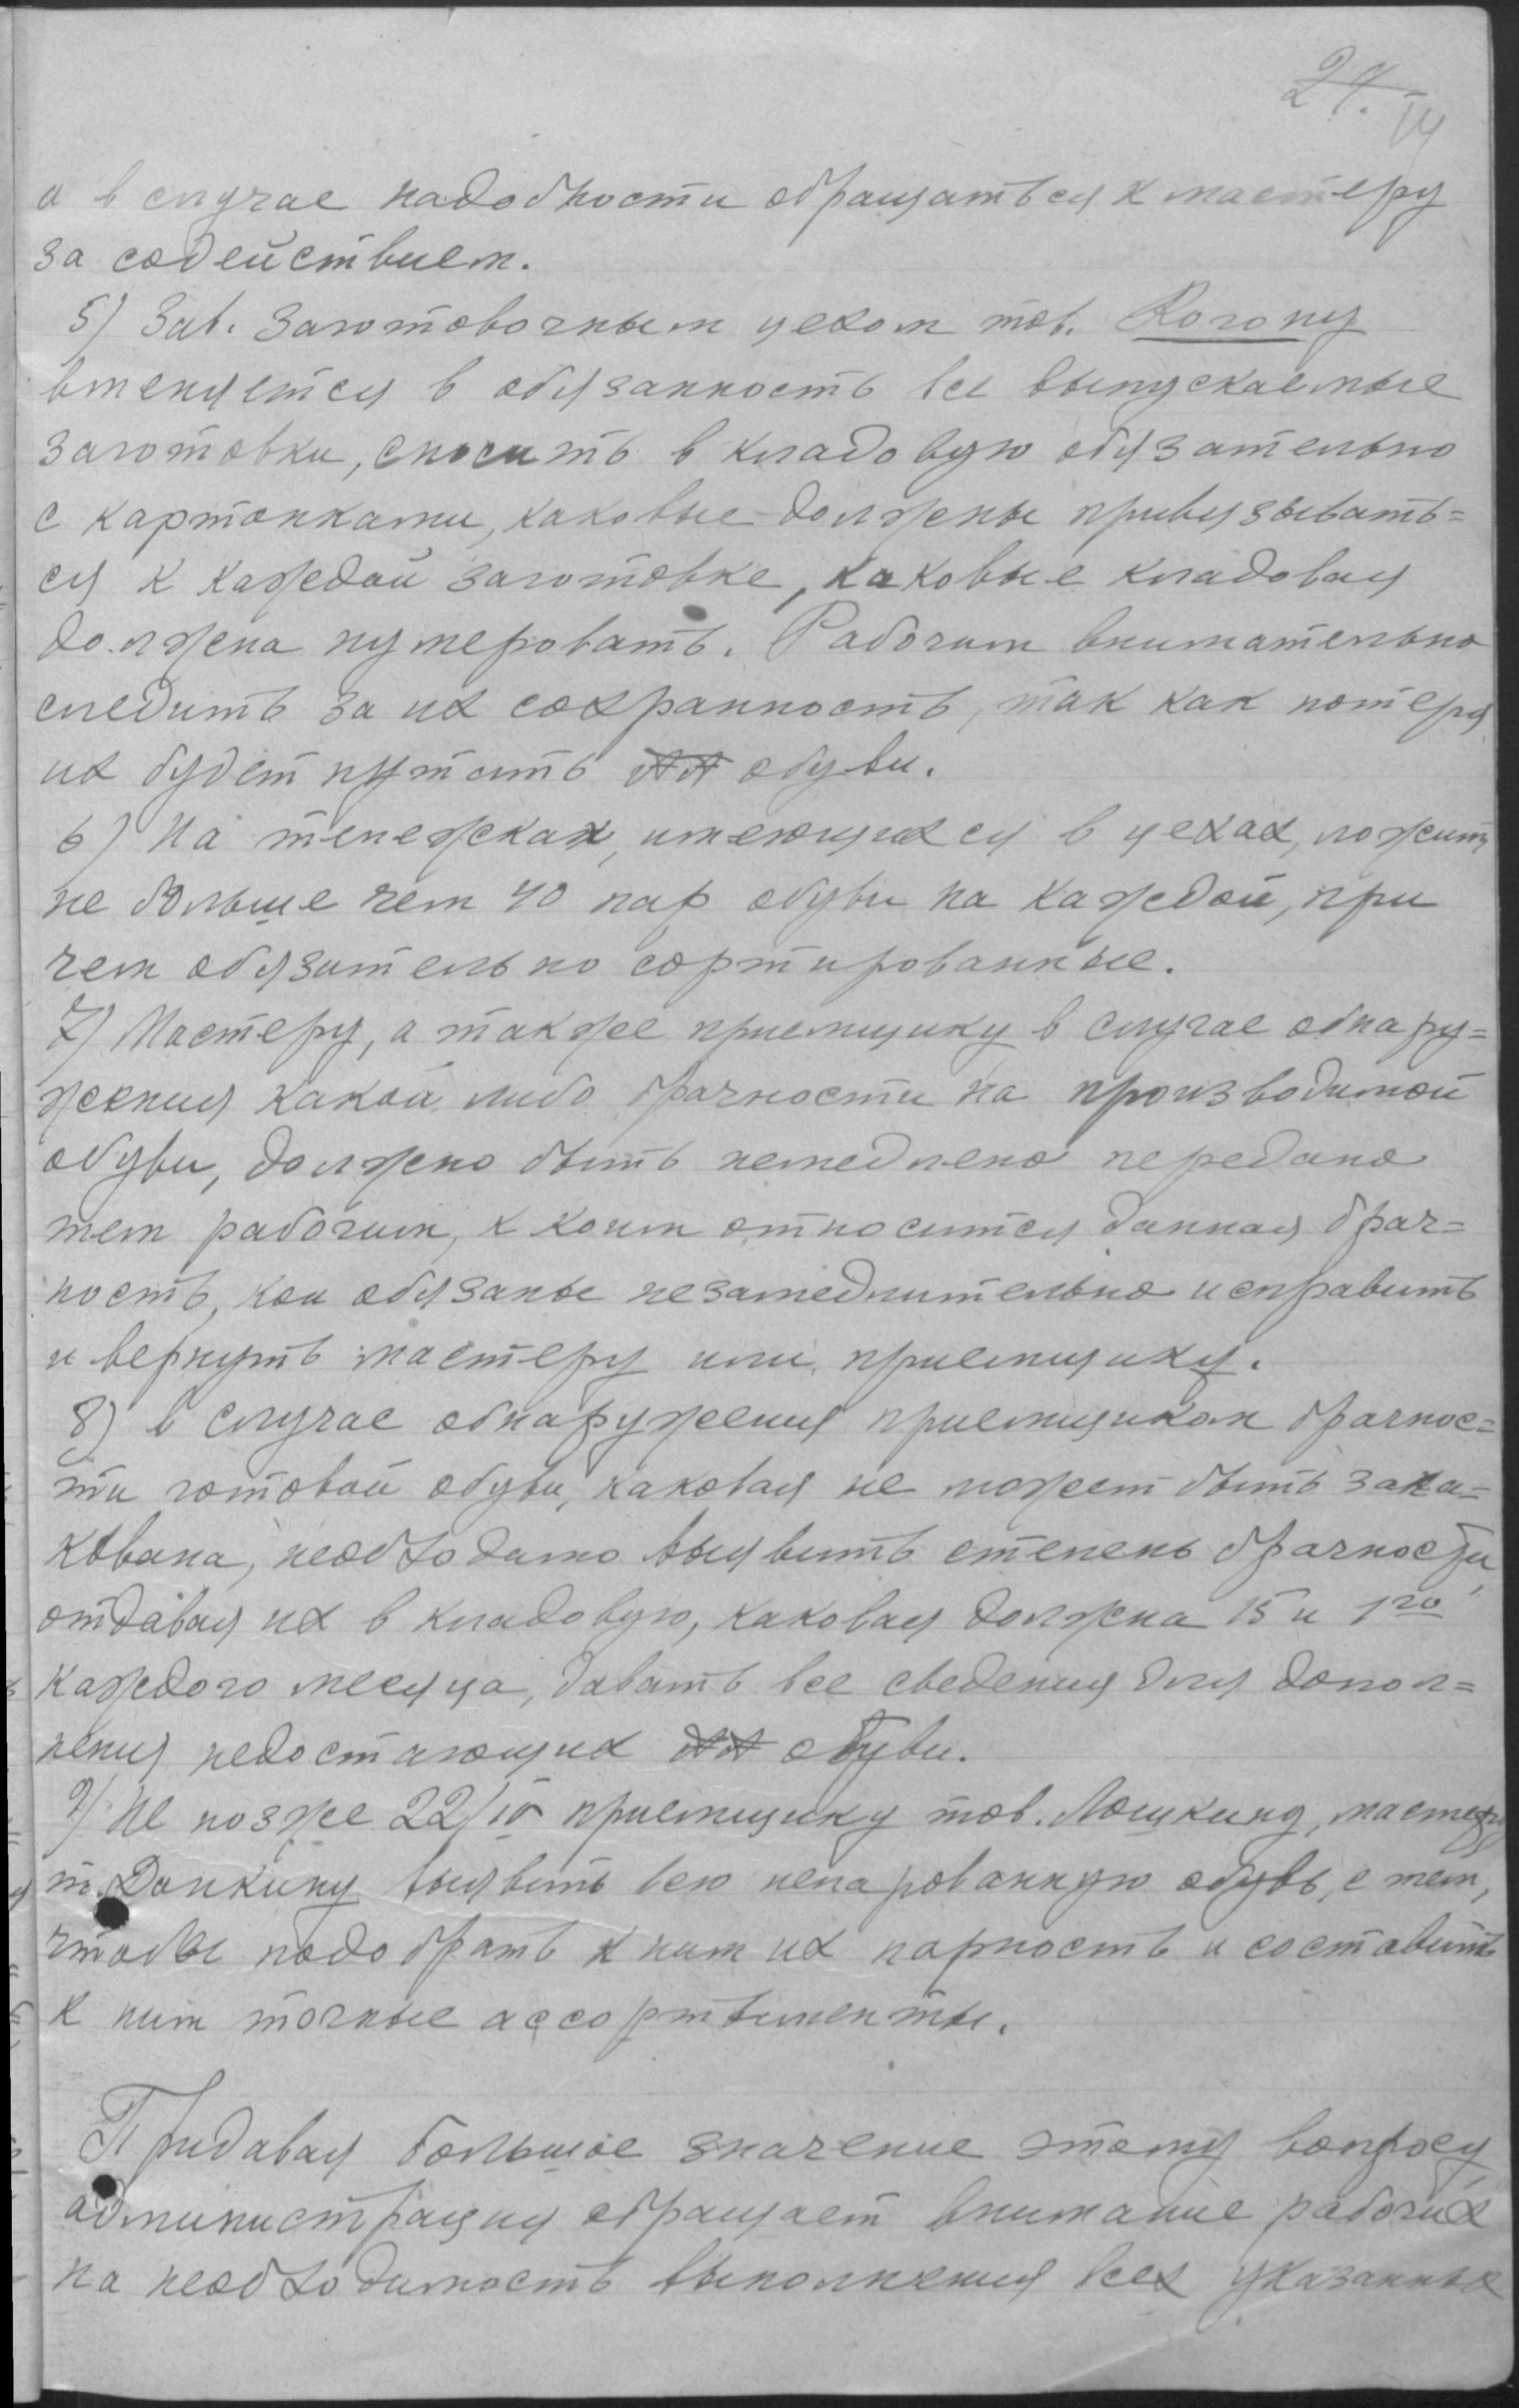 24.
а в случае надобности обращаться к мастеру
за содействием.
5) Зав. заготовочным цехом тов. Когону
вменяется в обязанность все выпускаемые
заготовки, сносить в кладовую обязательно
с картонками, каковые должны привязывать=
ся к каждой заготовке, каковые кладовая
должена нумеровать. Рабочим внимательно
следить за их сохранность, так как потеря
их будет путать №№ обуви.
6) На тележках, имеющихся в цехах, ложить
не больше чем 40 пар обуви на каждой, при
чем обязательно сортированные.
7) Мастеру, а также приемщику в случае обнару=
жения какой либо брачности на производимой
обуви, должно быть немедлено передано
тем рабочим, к коим относится данная брач=
ность, кои обязаны незамедлительно исправить
и вернуть мастеру или приемщику.
8) в случае обнаружения приемщиком брачнос=
ти готовой обуви, каковая не может быть запа=
кована, необходимо выявить степень брачности,
отдавая их в кладовую, каковая должна 15 и 1го
каждого месяца, давать все сведения для допол=
нения недостающих №№ обуви.
9) Не позже 22/IV приемщику тов. Лошкину, мастеру
т. Данкину выявить всю непарованную обувь, с тем,
чтобы подобрать к ним их парность и составить
к ним точные ассортименты.
Придавая большое значение этому вопросу,
администрация обращает внимание рабочих
на необходимость выполнения всех указанных